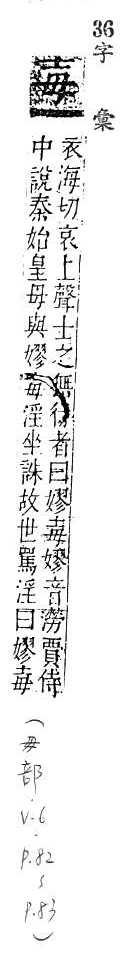 36字彙
毐
衣海切哀上聲士之無行者曰嫪毐嫪音澇賈侍
中說秦始皇母與嫪毐淫坐誅故世罵淫曰嫪毐
(毋部.
V.6.
P.82
~
P.83)